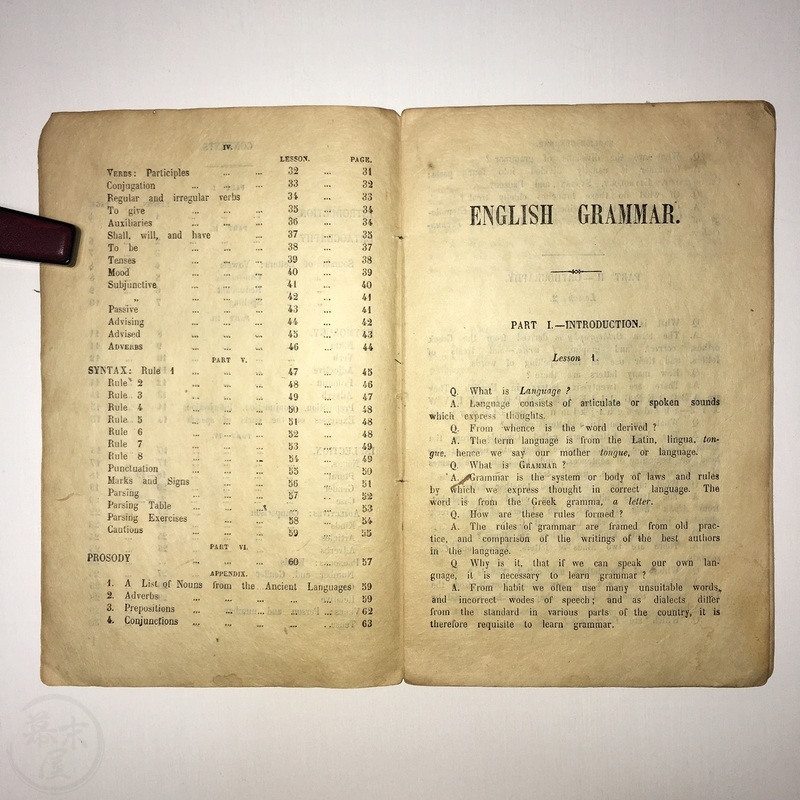 IV.
LESSON. PAGE.
VERBS: Participles ... ... 32 ... 31
Conjugation ... ... ... 33 ... 32
Regular and irregular verbs 34 ... 33
To give ... ... ... 35 ... 34
Auxiliaries ... ... ... 36 ... 34
Shall, will, and have ... 37 ... 35
To be ... ... ... 38 ... 37
Tenses ... ... ... 39 ... 38
Mood ... ... ... 40 ... 39
Subjunctive ... ... ... 41 ... 40
„ ... ... ... 42 ... 41
Passive ... ... ... 43 ... 41
Advising ... ... ... 44 ... 42
Advised ... ... ... 45 ... 43
ADVERBS ... ... ... 46 ... 44
PART V.
SYNTAX: Rule 1 ... ... ... 47 ... 45
Rule 2 ... ... ... 48 ... 46
Rule 3 ... ... ... 49 ... 47
Rule 4 ... ... ... 50 ... 48
Rule 5 ... ... ... 51 ... 48
Rule 6 ... ... ... 52 ... 48
Rule 7 ... ... ... 53 ... 49
Rule 8 ... ... ... 54 ... 49
Punctuation ... ... ... 55 ... 50
Marks and Signs ... ... 56 ... 51
Parsing ... ... ... 57 ... 52
Parsing Table ... ... ... 53
Parsing Exercises ... ... 58 ... 54
Cautions ... ... ... 59 ... 55
PART VI.
PROSODY ... ... ... 60 ... 57
APPENDIX.
1. A List of Nouns from the Ancient Languages 59
2. Adverbs ... ... ... ... ... 59
3. Prepositions ... ... ... ... ... 62
4. Conjunctions ... ... ... ... ... 63
ENGLISH GRAMMAR.
PART I.—INTRODUCTION.
Lesson 1.
Q. What is Language ?
A. Language consists of articulate or spoken sounds
which express thoughts.
Q. From whence is the word derived ?
A. The term language is from the Latin, lingua, ton-
gue, hence we say our mother tongue, or language.
Q. What is GRAMMAR ?
A. Grammar is the system or body of laws and rules
by which we express thought in correct language. The
word is from the Greek gramma, a letter.
Q. How are these rules formed ?
A. The rules of grammar are framed from old prac-
tice, and comparison of the writings of the best authors
in the language.
Q. Why is it, that if we can speak our own lan-
guage, it is necessary to learn grammar ?
A. From habit we often use many unsuitable words,
and incorrect wodes of speech; and as dialects differ
from the standard in various parts of the country, it is
therefore requisite to learn grammar.
幕末屋